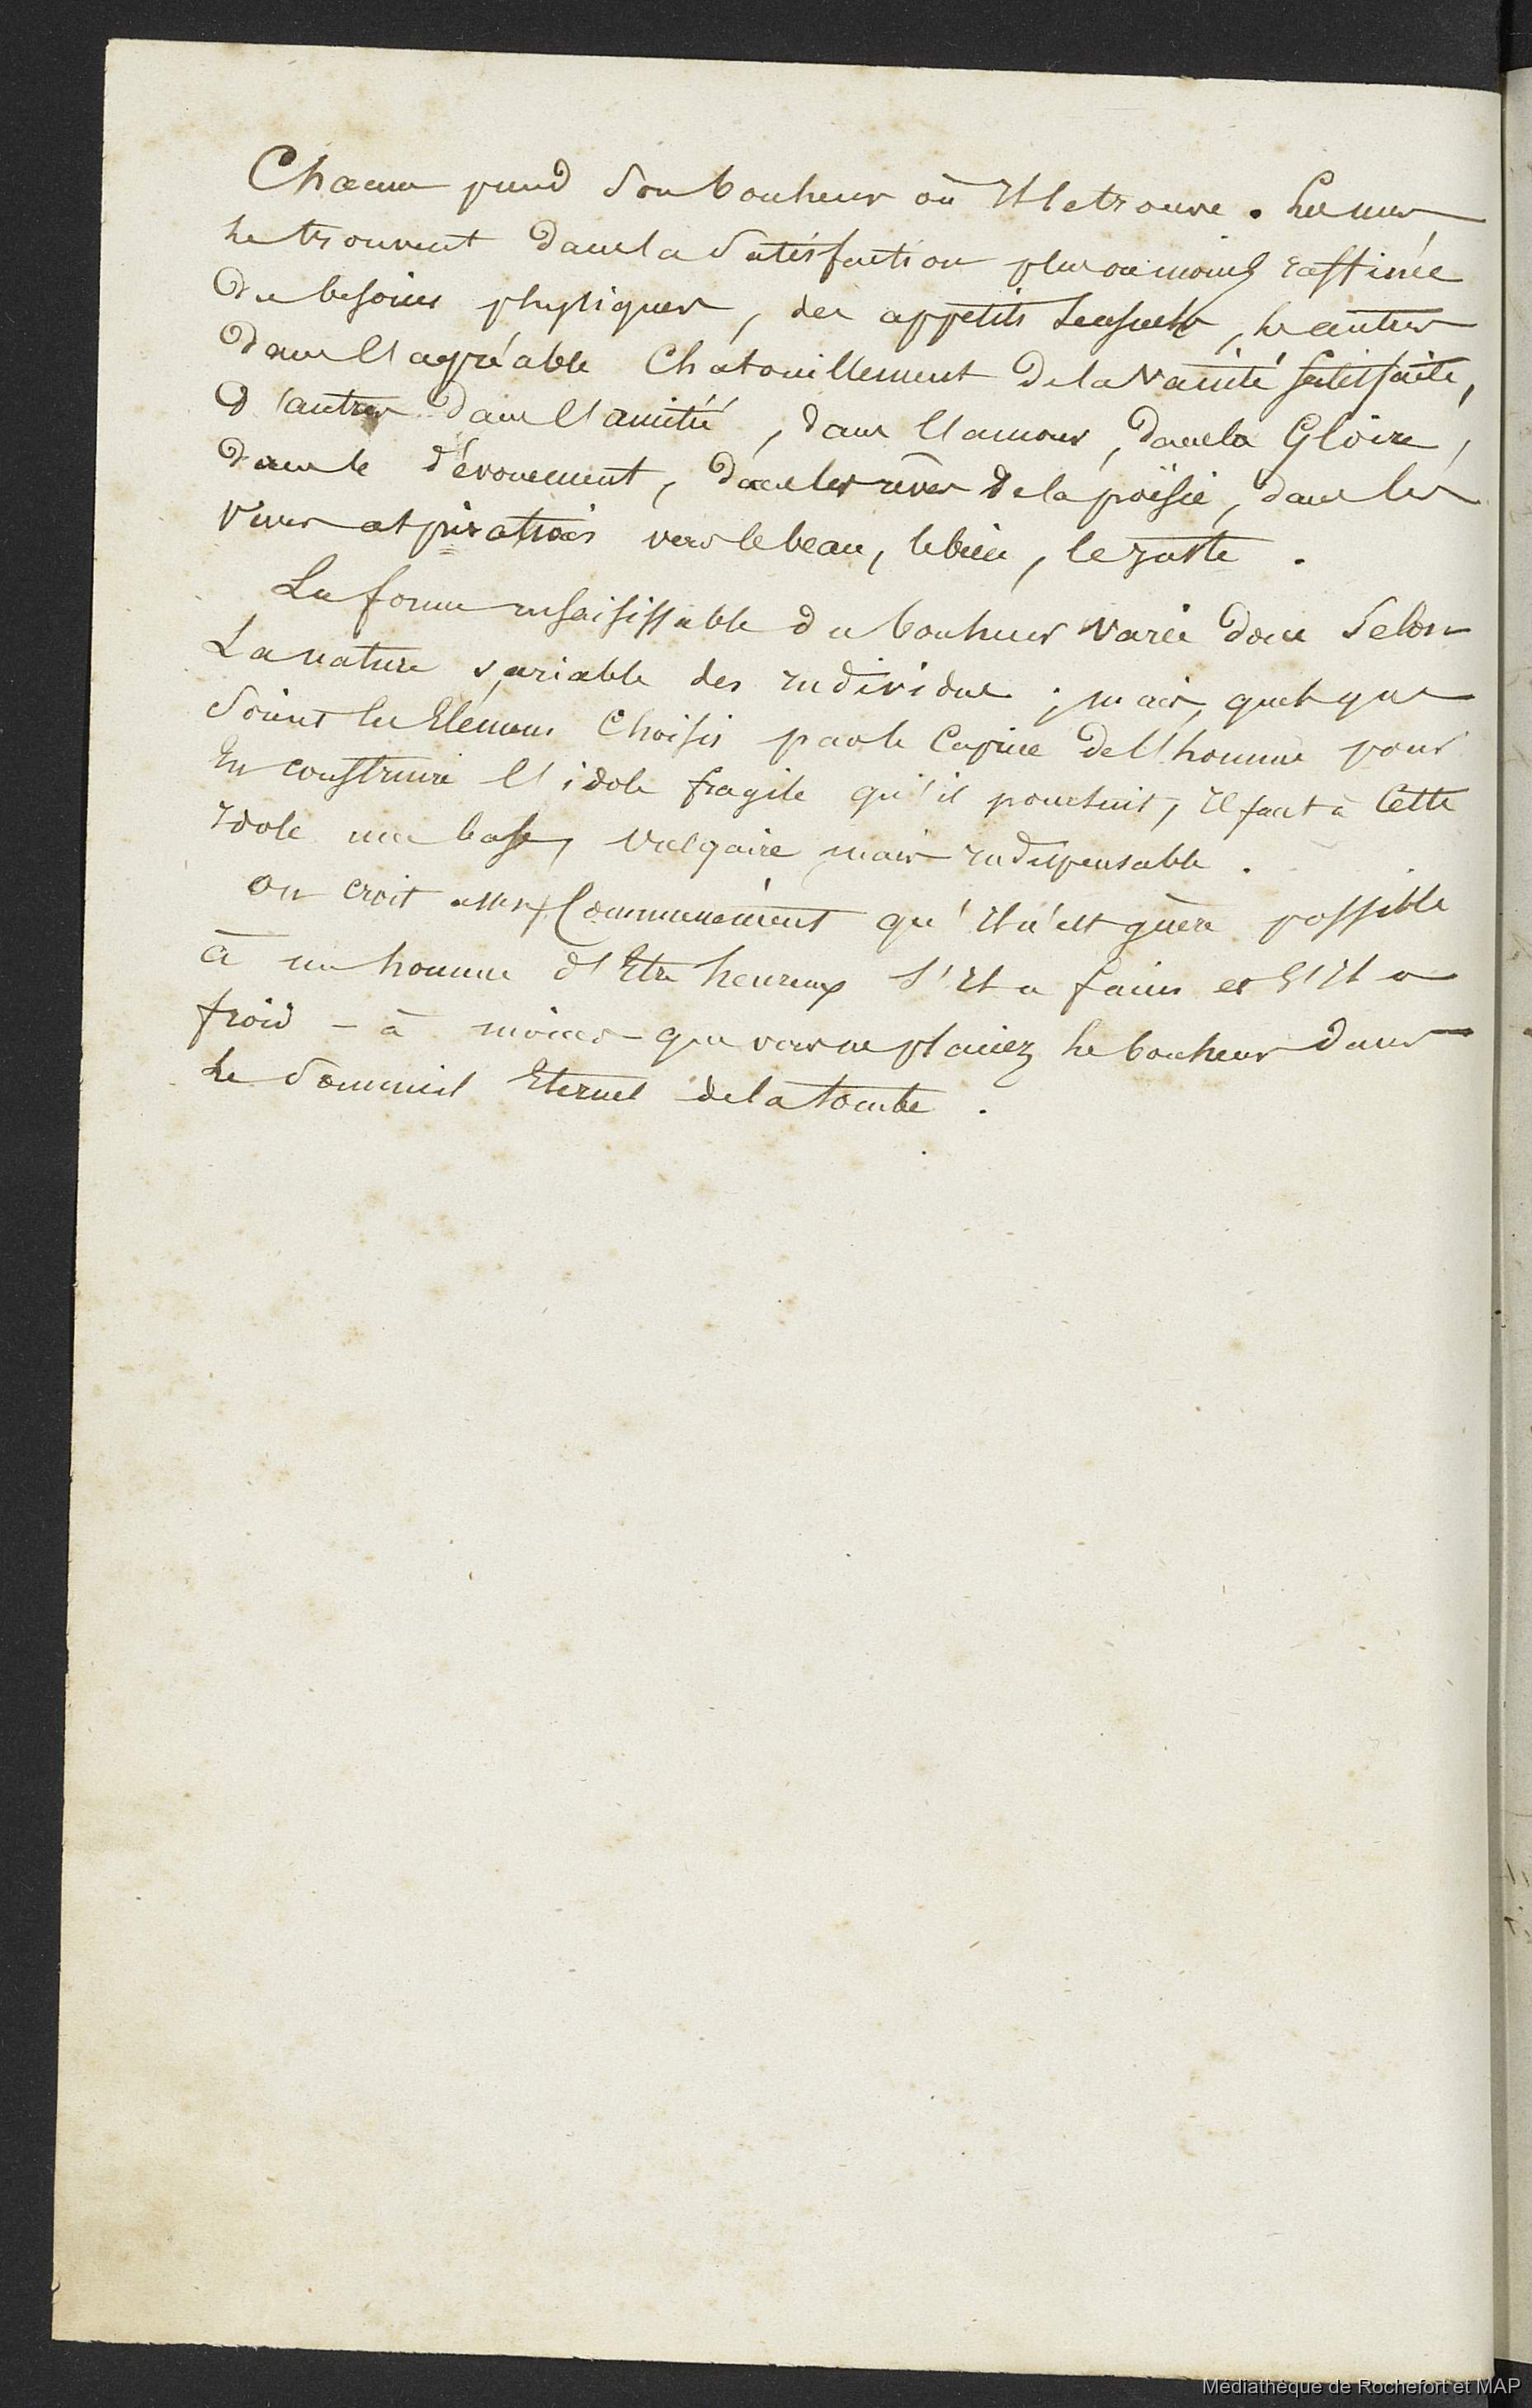 Chacun prend son bonheur où Il le trouve. Les uns
le trouvent dans la Satisfaction plus ou moins raffinée
des besoins physiques, des appétits sensuels, les autres
dans l'agréable Chatouillement de la Vanité satisfaite,
d'autres dans l'amitié, dans l'amour, dans la Gloire,
dans le dévouement, dans les rêves de la poësie, dans les
vives aspirations vers le beau, le bien, le juste.
La forme insaisissable du bonheur varie donc Selon
La nature variable des Individus ; mais, quels que
Soient les Elémens Choisis par le Caprice de l'homme pour
En construire l'idole fragile qu'il poursuit, Il faut à Cette
Idole une base, vulgaire mais Indispensable.
On croit assez Communément qu'Il n'est guère possible
à un homme d'Etre heureux s'Il a faim et s'Il a
froid – à moins que vous ne placiez le bonheur dans
le Sommeil Eternel de la tombe.
Médiathèque de Rochefort et MAP